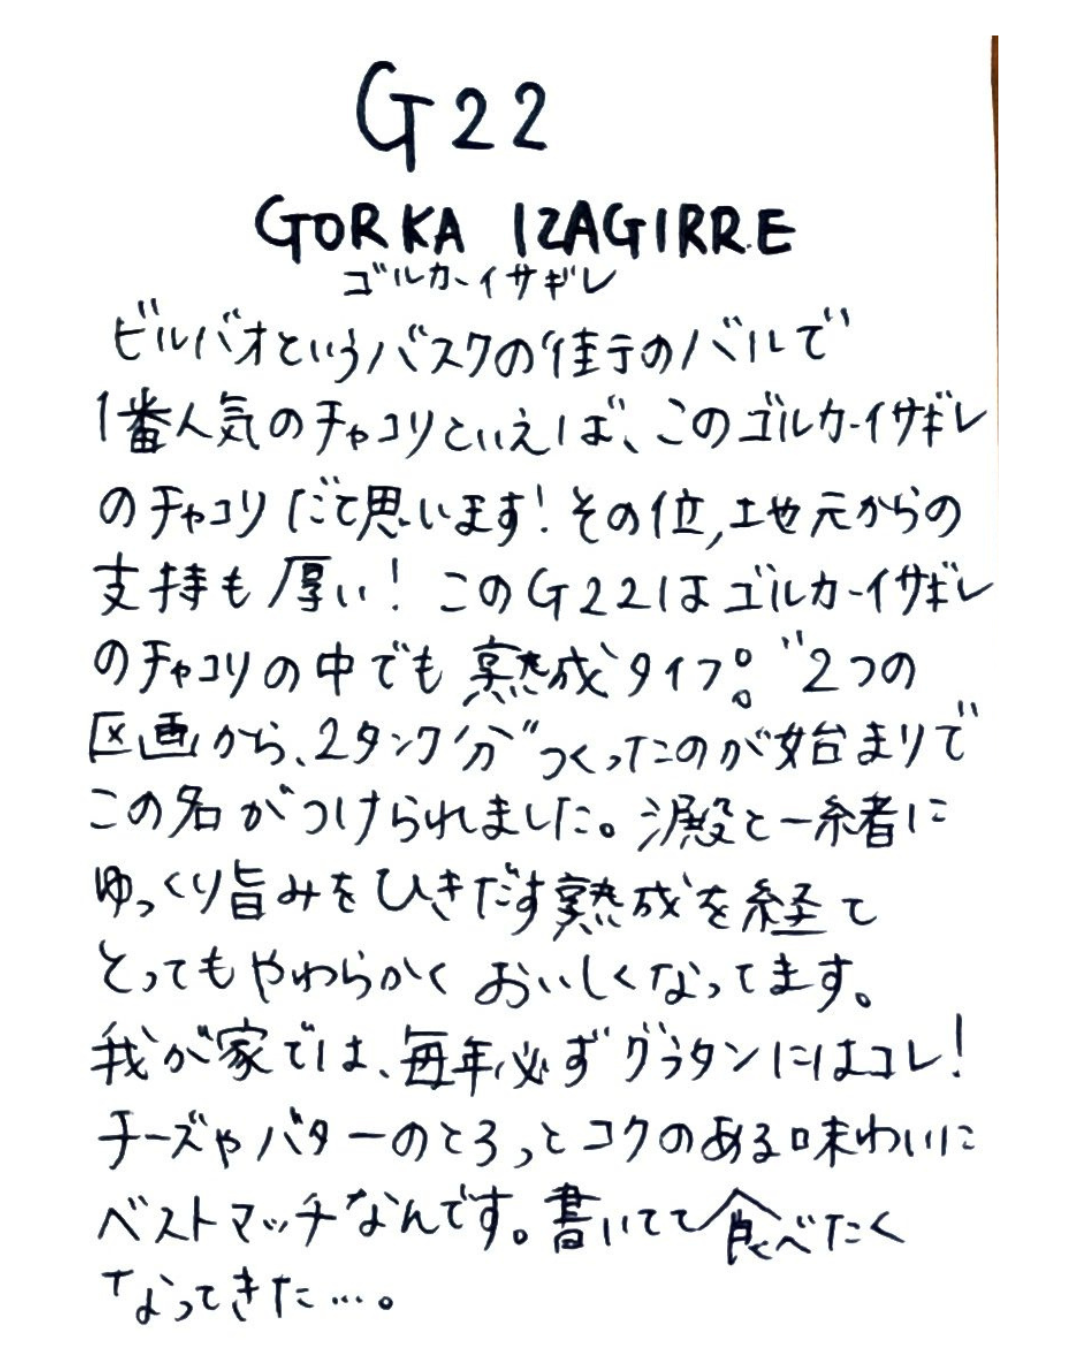 G22
GORKA IZAGIRRE
ゴルカ・イサギレ
ビルバオというバスクの街のバルで
1番人気のチャコリといえば、このゴルカ・イサギレ
のチャコリだと思います!その位,土地元からの
支持も厚い!このG22はゴルカ・イサギレ
のチャコリの中でも熟成タイプ。"2つの
区画から、2タンク分"つくったのが始まりで
この名がつけられました。澱と一緒に
ゆっくり旨みをひきだす熟成を経て
とってもやわらかくおいしくなってます。
我が家では、毎年必ずグラタンにはコレ!
チーズやバターのとろっとコクのある味わいに
ベストマッチなんです。書いてて食べたく
なってきた…。